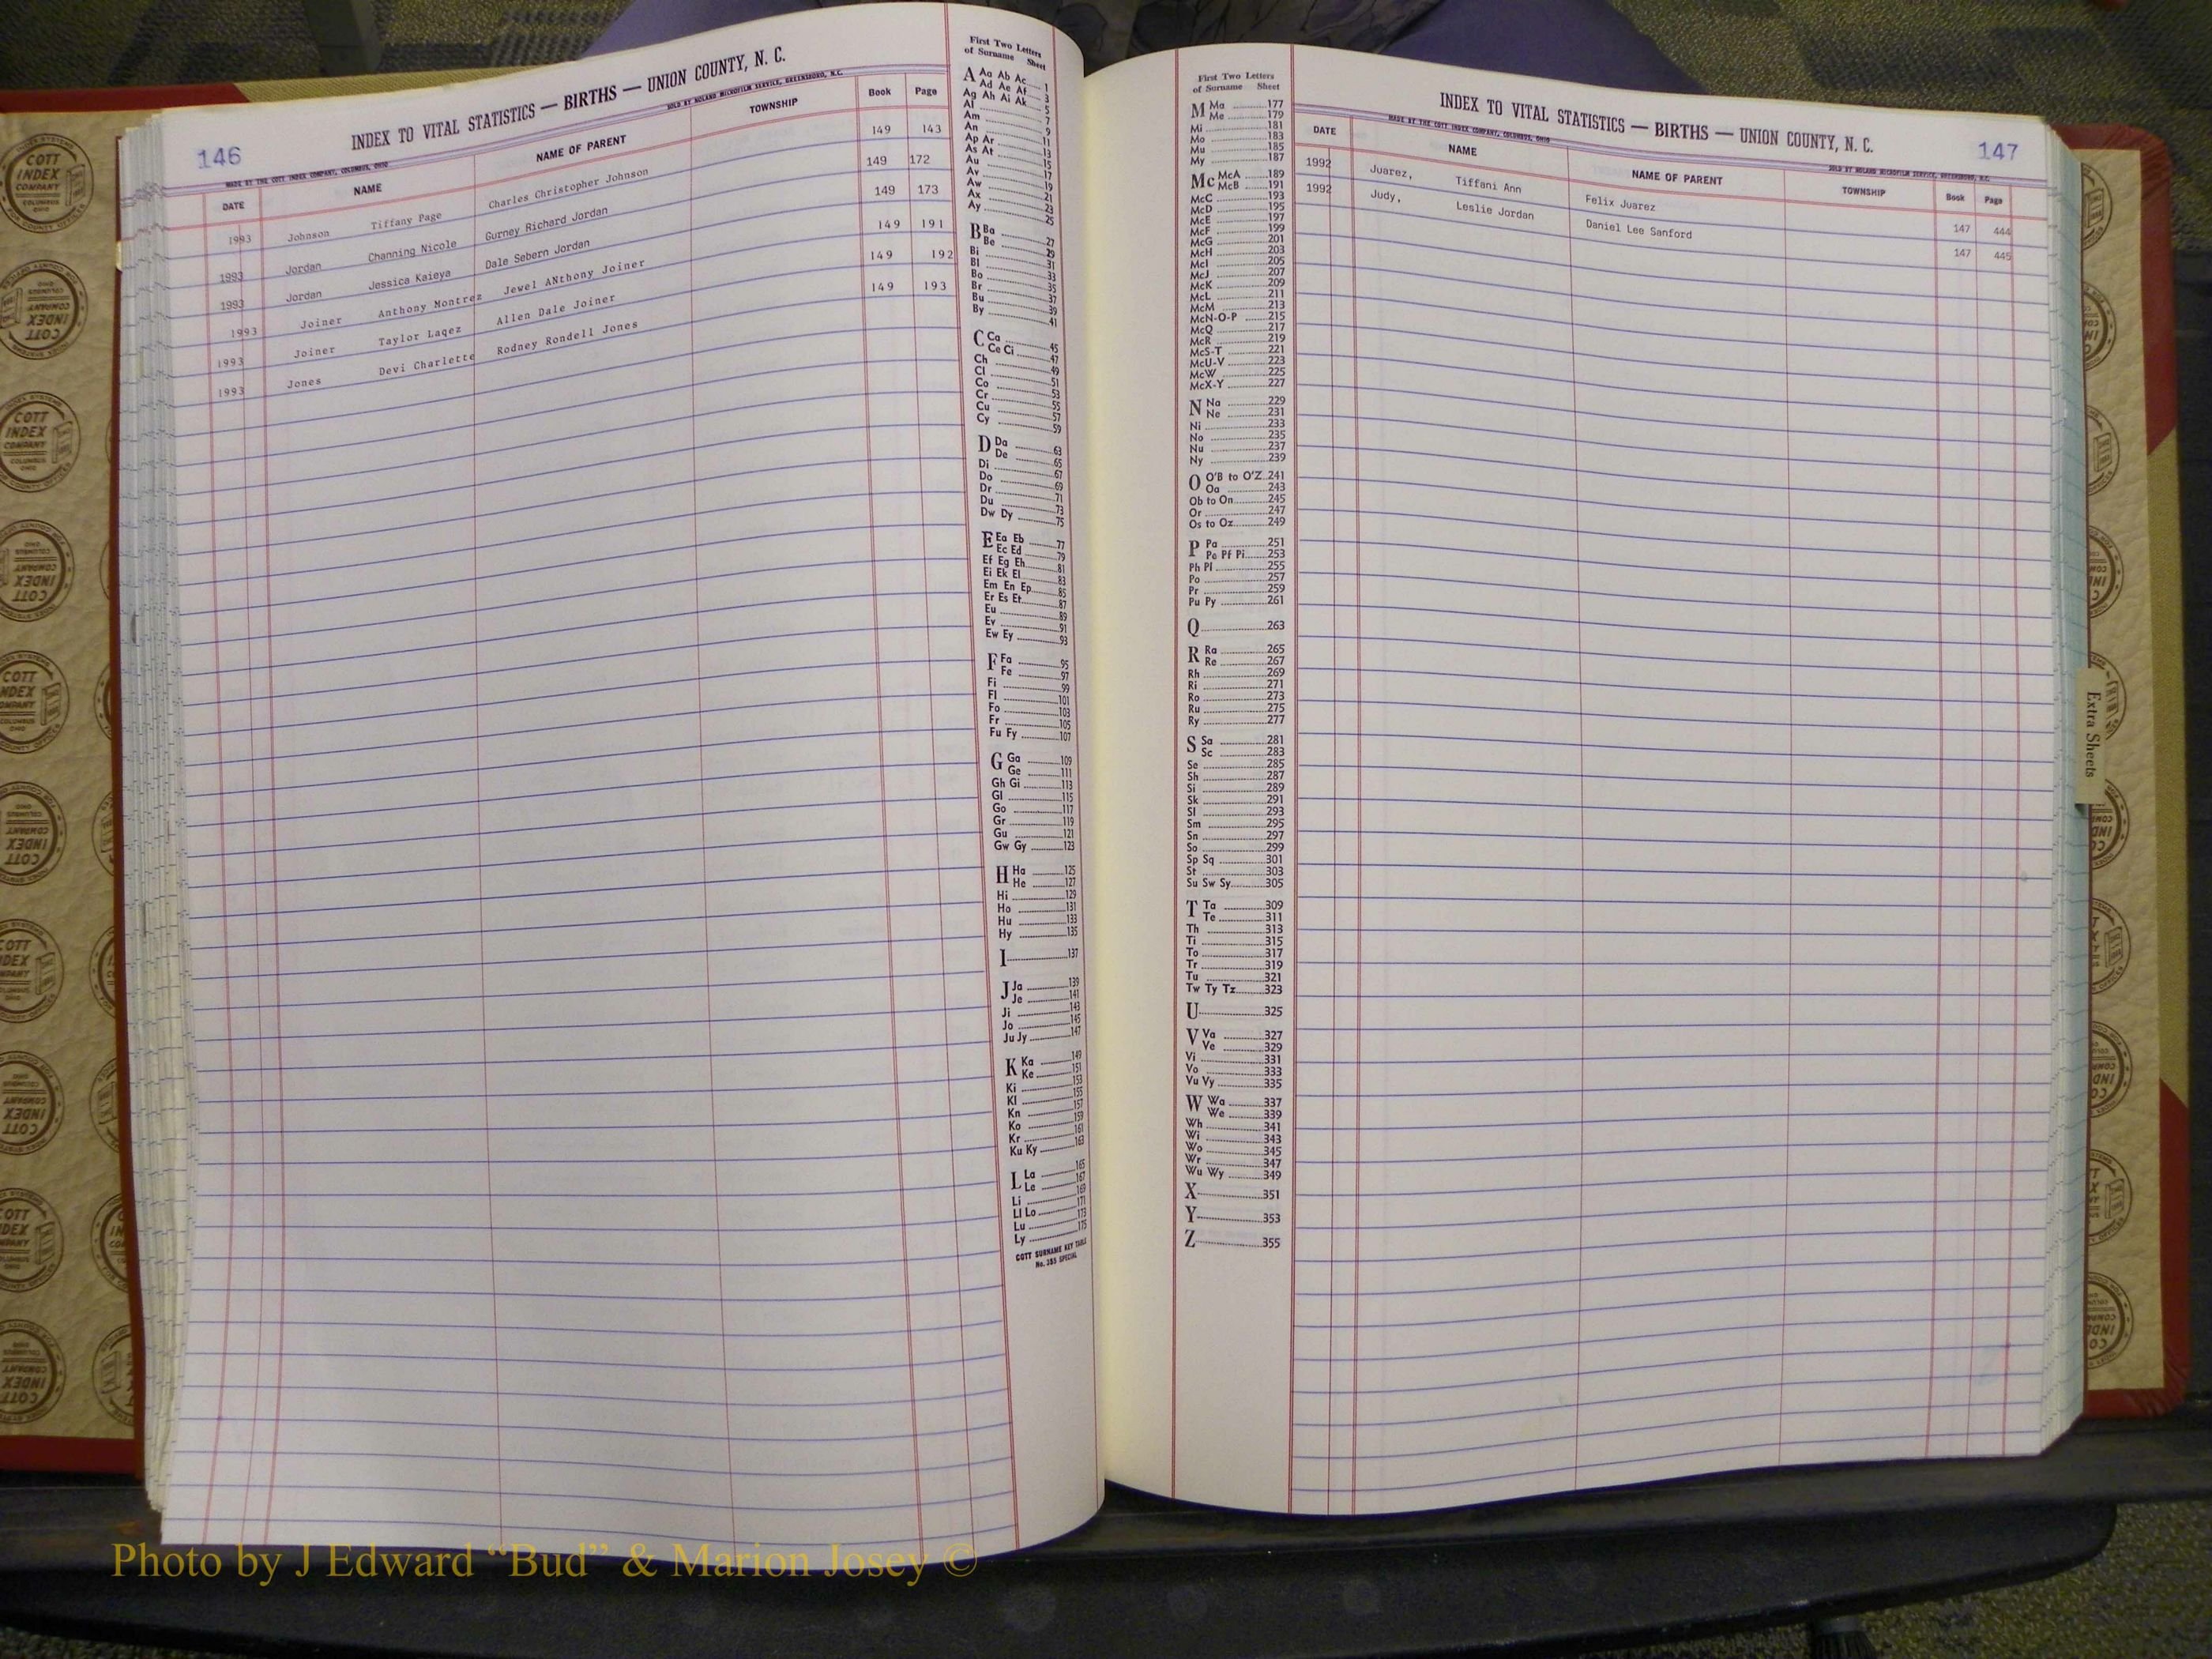 146
INDEX TO VITAL STATISTICS — BIRTHS — UNION COUNTY, N. C.
MADE BY THE COTT INDEX COMPANY, COLUMBUS, OHIO
SOLD BY NOLAND MICROFILM SERVICE, GREENSBORO, N.C.
DATE NAME NAME OF PARENT TOWNSHIP Book Page
1993 Johnson Tiffany Page Charles Christopher Johnson 149 143
1993 Jordan Channing Nicole Gurney Richard Jordan 149 172
1993 Jordan Jessica Kaieya Dale Sebern Jordan 149 173
1993 Joiner Anthony Montrez Jewel ANthony Joiner 149 191
1993 Joiner Taylor Laqez Allen Dale Joiner 149 192
1993 Jones Devi Charlette Rodney Rondell Jones 149 193
First Two Letters
of Surname Sheet
A Aa Ab Ac 1
Ad Ae Af 3
Ag Ah Ai Ak 5
Al 7
Am 9
An 11
Ap Ar 13
As At 15
Au 17
Av 19
Aw 21
Ax 23
Ay 25
B Ba 27
Be 29
Bi 31
Bl 33
Bo 35
Br 37
Bu 39
By 41
C Ca 45
Ce Ci 47
Ch 49
Cl 51
Co 53
Cr 55
Cu 57
Cy 59
D Da 63
De 65
Di 67
Do 69
Dr 71
Du 73
Dw Dy 75
E Ea Eb 77
Ec Ed 79
Ef Eg Eh 81
Ei Ek El 83
Em En Ep 85
Er Es Et 87
Eu 89
Ev 91
Ew Ey 93
F Fa 95
Fe 97
Fi 99
Fl 101
Fo 103
Fr 105
Fu Fy 107
G Ga 109
Ge 111
Gh Gi 113
Gl 115
Go 117
Gr 119
Gu 121
Gw Gy 123
H Ha 125
He 127
Hi 129
Ho 131
Hu 133
Hy 135
I 137
J Ja 139
Je 141
Ji 143
Jo 145
Ju Jy 147
K Ka 149
Ke 151
Ki 153
Kl 155
Kn 157
Ko 159
Kr 161
Ku Ky 163
L La 165
Le 167
Li 169
Ll Lo 171
Lu 173
Ly 175
COTT SURNAME KEY TABLE
No. 355 SPECIAL
First Two Letters
of Surname Sheet
M Ma 177
Me 179
Mi 181
Mo 183
Mu 185
My 187
Mc McA 189
McB 191
McC 193
McD 195
McE 197
McF 199
McG 201
McH 203
McI 205
McJ 207
McK 209
McL 211
McM 213
McN-O-P 215
McQ 217
McR 219
McS-T 221
McU-V 223
McW 225
McX-Y 227
N Na 229
Ne 231
Ni 233
No 235
Nu 237
Ny 239
O O'B to O'Z 241
Oa 243
Ob to On 245
Or 247
Os to Oz 249
P Pa 251
Pe Pf Pi 253
Ph Pl 255
Po 257
Pr 259
Pu Py 261
Q 263
R Ra 265
Re 267
Rh 269
Ri 271
Ro 273
Ru 275
Ry 277
S Sa 281
Sc 283
Se 285
Sh 287
Si 289
Sk 291
Sl 293
Sm 295
Sn 297
So 299
Sp Sq 301
St 303
Su Sw Sy 305
T Ta 309
Te 311
Th 313
Ti 315
To 317
Tr 319
Tu 321
Tw Ty Tz 323
U 325
V Va 327
Ve 329
Vi 331
Vo 333
Vu Vy 335
W Wa 337
We 339
Wh 341
Wi 343
Wo 345
Wr 347
Wu Wy 349
X 351
Y 353
Z 355
INDEX TO VITAL STATISTICS — BIRTHS — UNION COUNTY, N. C.
147
MADE BY THE COTT INDEX COMPANY, COLUMBUS, OHIO
SOLD BY NOLAND MICROFILM SERVICE, GREENSBORO, N.C.
DATE NAME NAME OF PARENT TOWNSHIP Book Page
1992 Juarez, Tiffani Ann Felix Juarez 147 444
1992 Judy, Leslie Jordan Daniel Lee Sanford 147 445
Extra Sheets
COTT
INDEX
COMPANY
Photo by J Edward “Bud” & Marion Josey ©